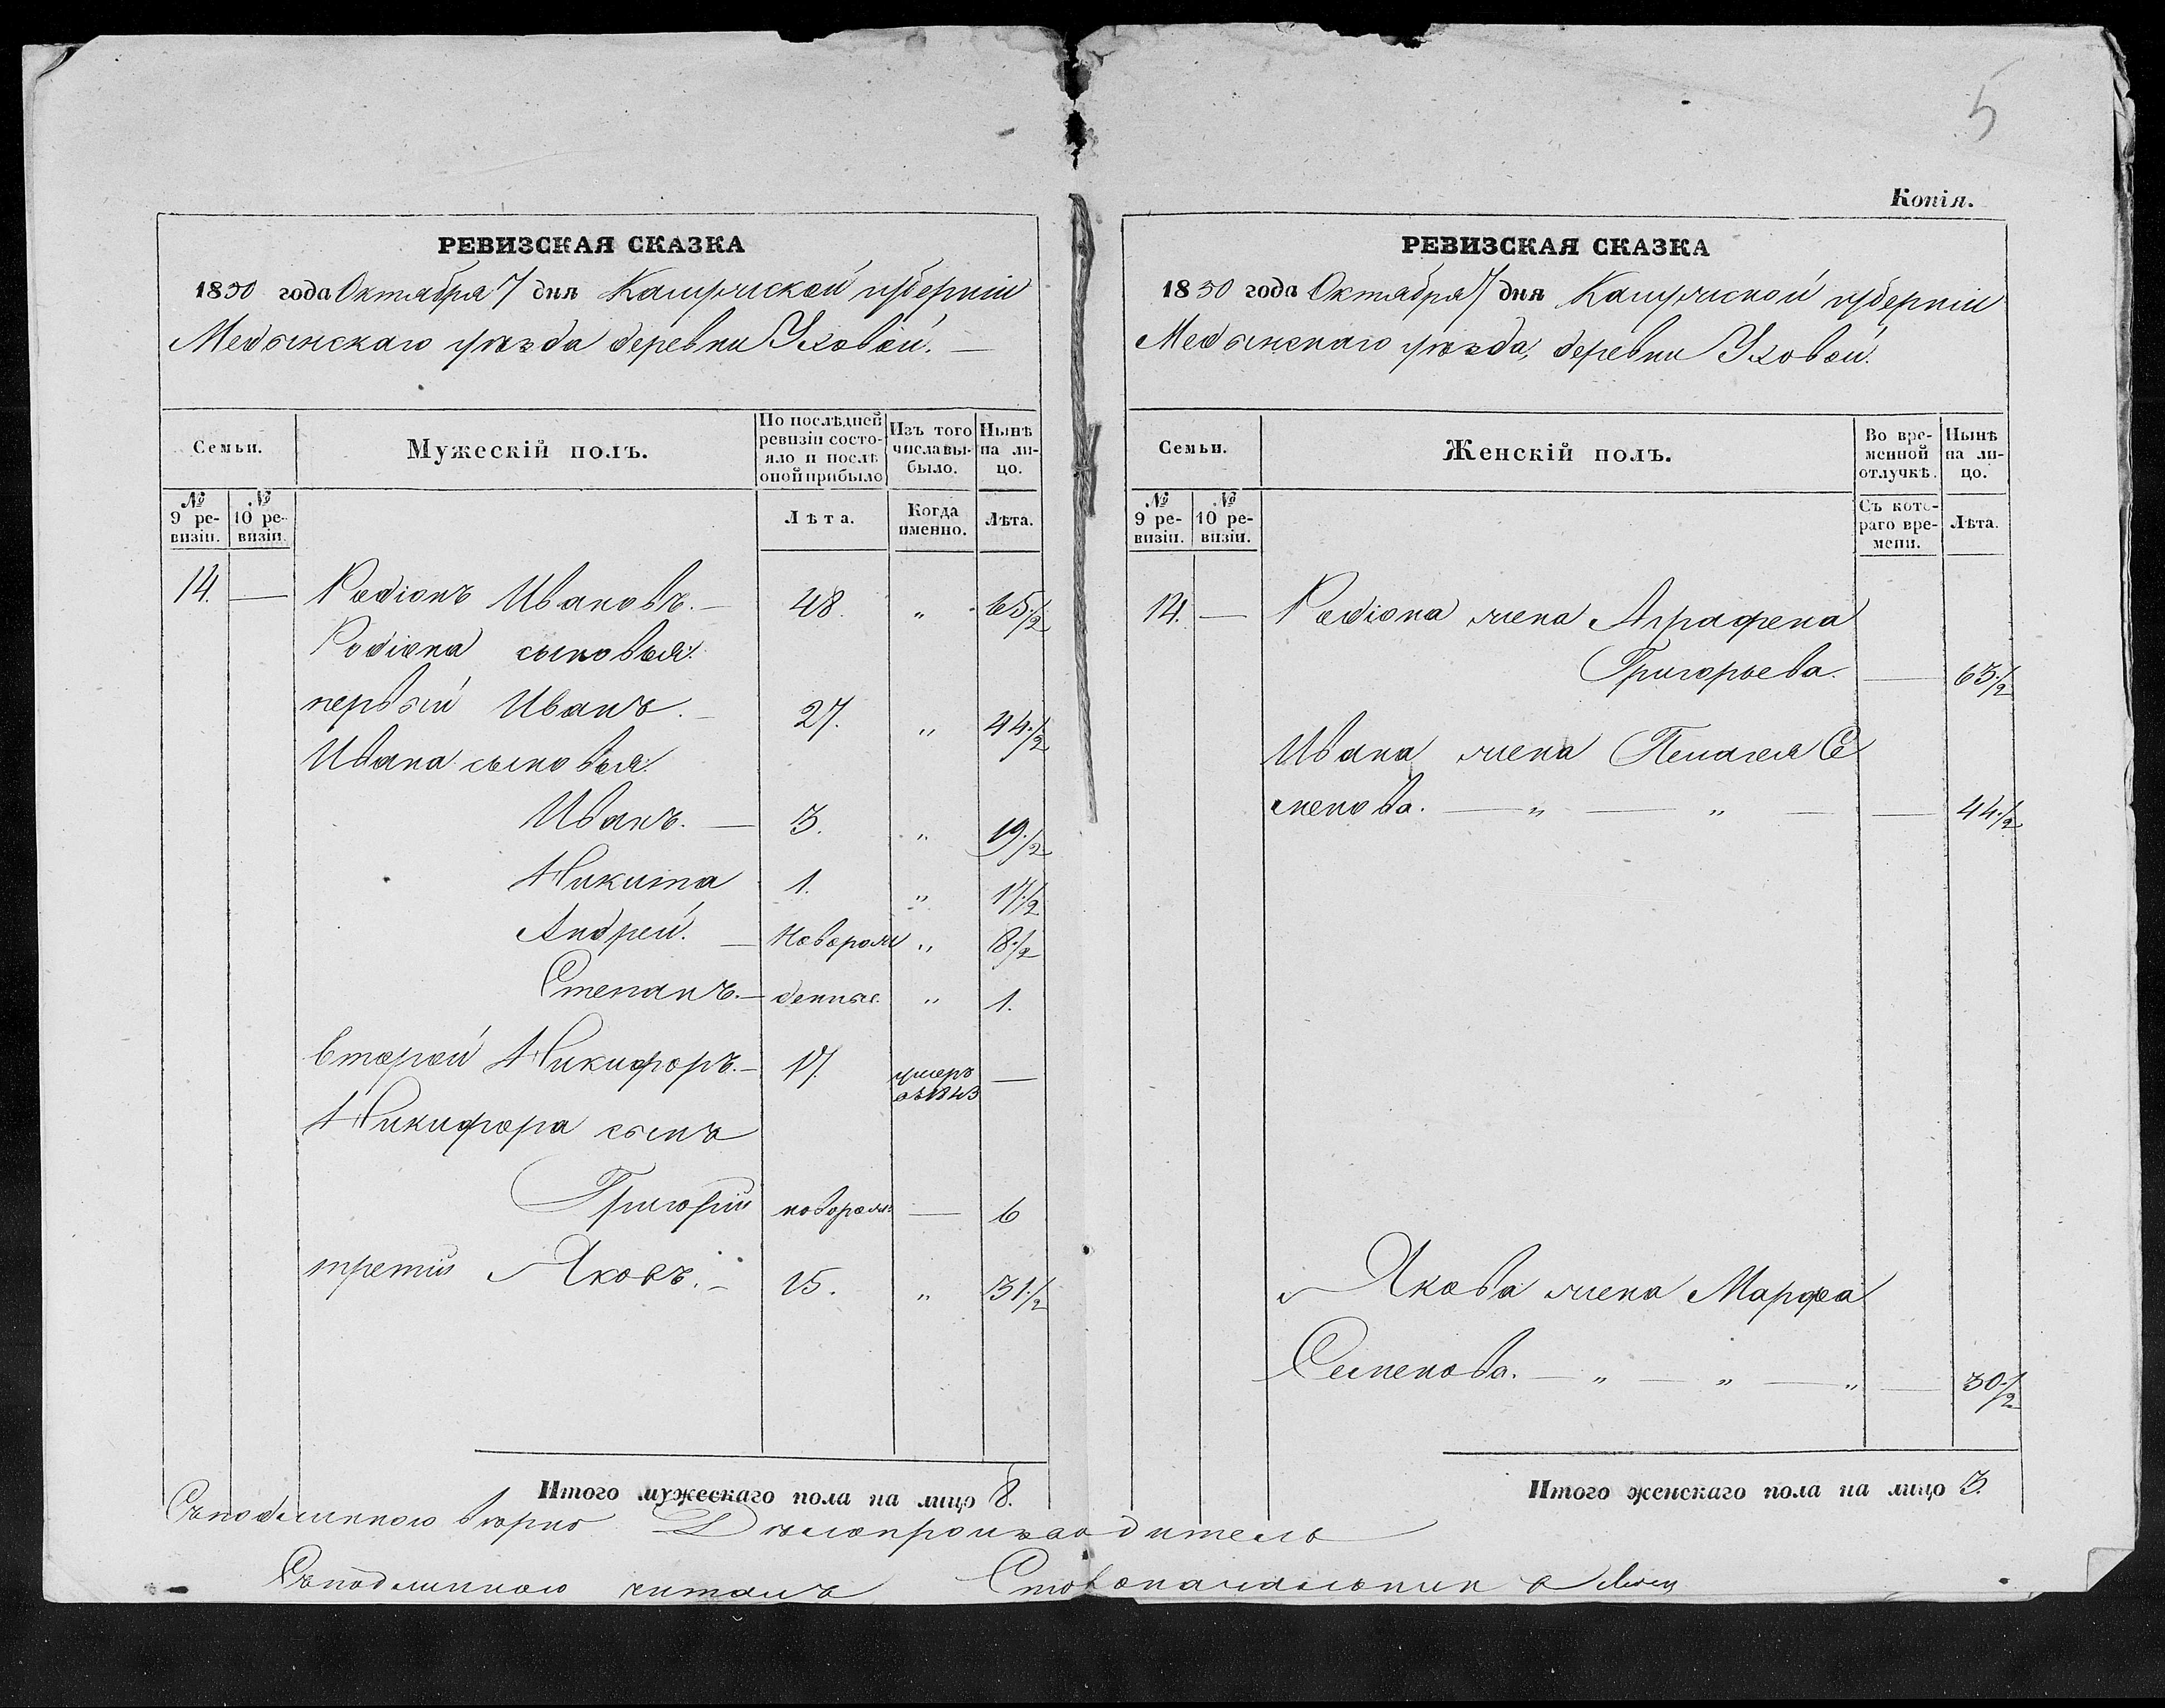 5
Копія.
РЕВИЗСКАЯ СКАЗКА
1850 года Октября 7 дня Калужской губерніи
Медынскаго уѣзда деревни Уховой. —
Семьи.
Мужескій полъ.
По послѣдней ревизіи состояло и послѣ оной прибыло
Изъ того числа выбыло.
Нынѣ на лицо.
№ 9 ревизіи.
№ 10 ревизіи.
Лѣта.
Когда именно.
Лѣта.
14. — Родіонъ Ивановъ. — 48. " 65 1/2
Родіона сыновья:
первый Иванъ. — 27. " 44 1/2
Ивана сыновья:
Иванъ. — 3. " 19 1/2
Никита 1. " 17 1/2
Андрей. — Неворож " 8 1/2
Степанъ. — денные. " 1.
второй Никифоръ. — 17. умеръ въ 1843 —
Никифора сынъ
Григорій новорож. — 6
третій Яковъ. — 15. " 31 1/2
Итого мужескаго пола на лицо 8.
РЕВИЗСКАЯ СКАЗКА
1850 года Октября 7 дня Калужской губерніи
Медынскаго уѣзда, деревни Уховой.
Семьи.
Женскій полъ.
Во временной отлучкѣ.
Нынѣ на лицо.
№ 9 ревизіи.
№ 10 ревизіи.
Съ котораго времени.
Лѣта.
14. — Родіона жена Аграфена
Григорьева. — 63 1/2
Ивана жена Пелагея Се
менова. — " — " — — 44 1/2
Якова жена Марфа
Семенова. — " — " — " — 30 1/2
Итого женскаго пола на лицо 3.
Съ подлиннымъ вѣрно Дѣлопроизводитель
Съ подлиннымъ читалъ Столоначальник